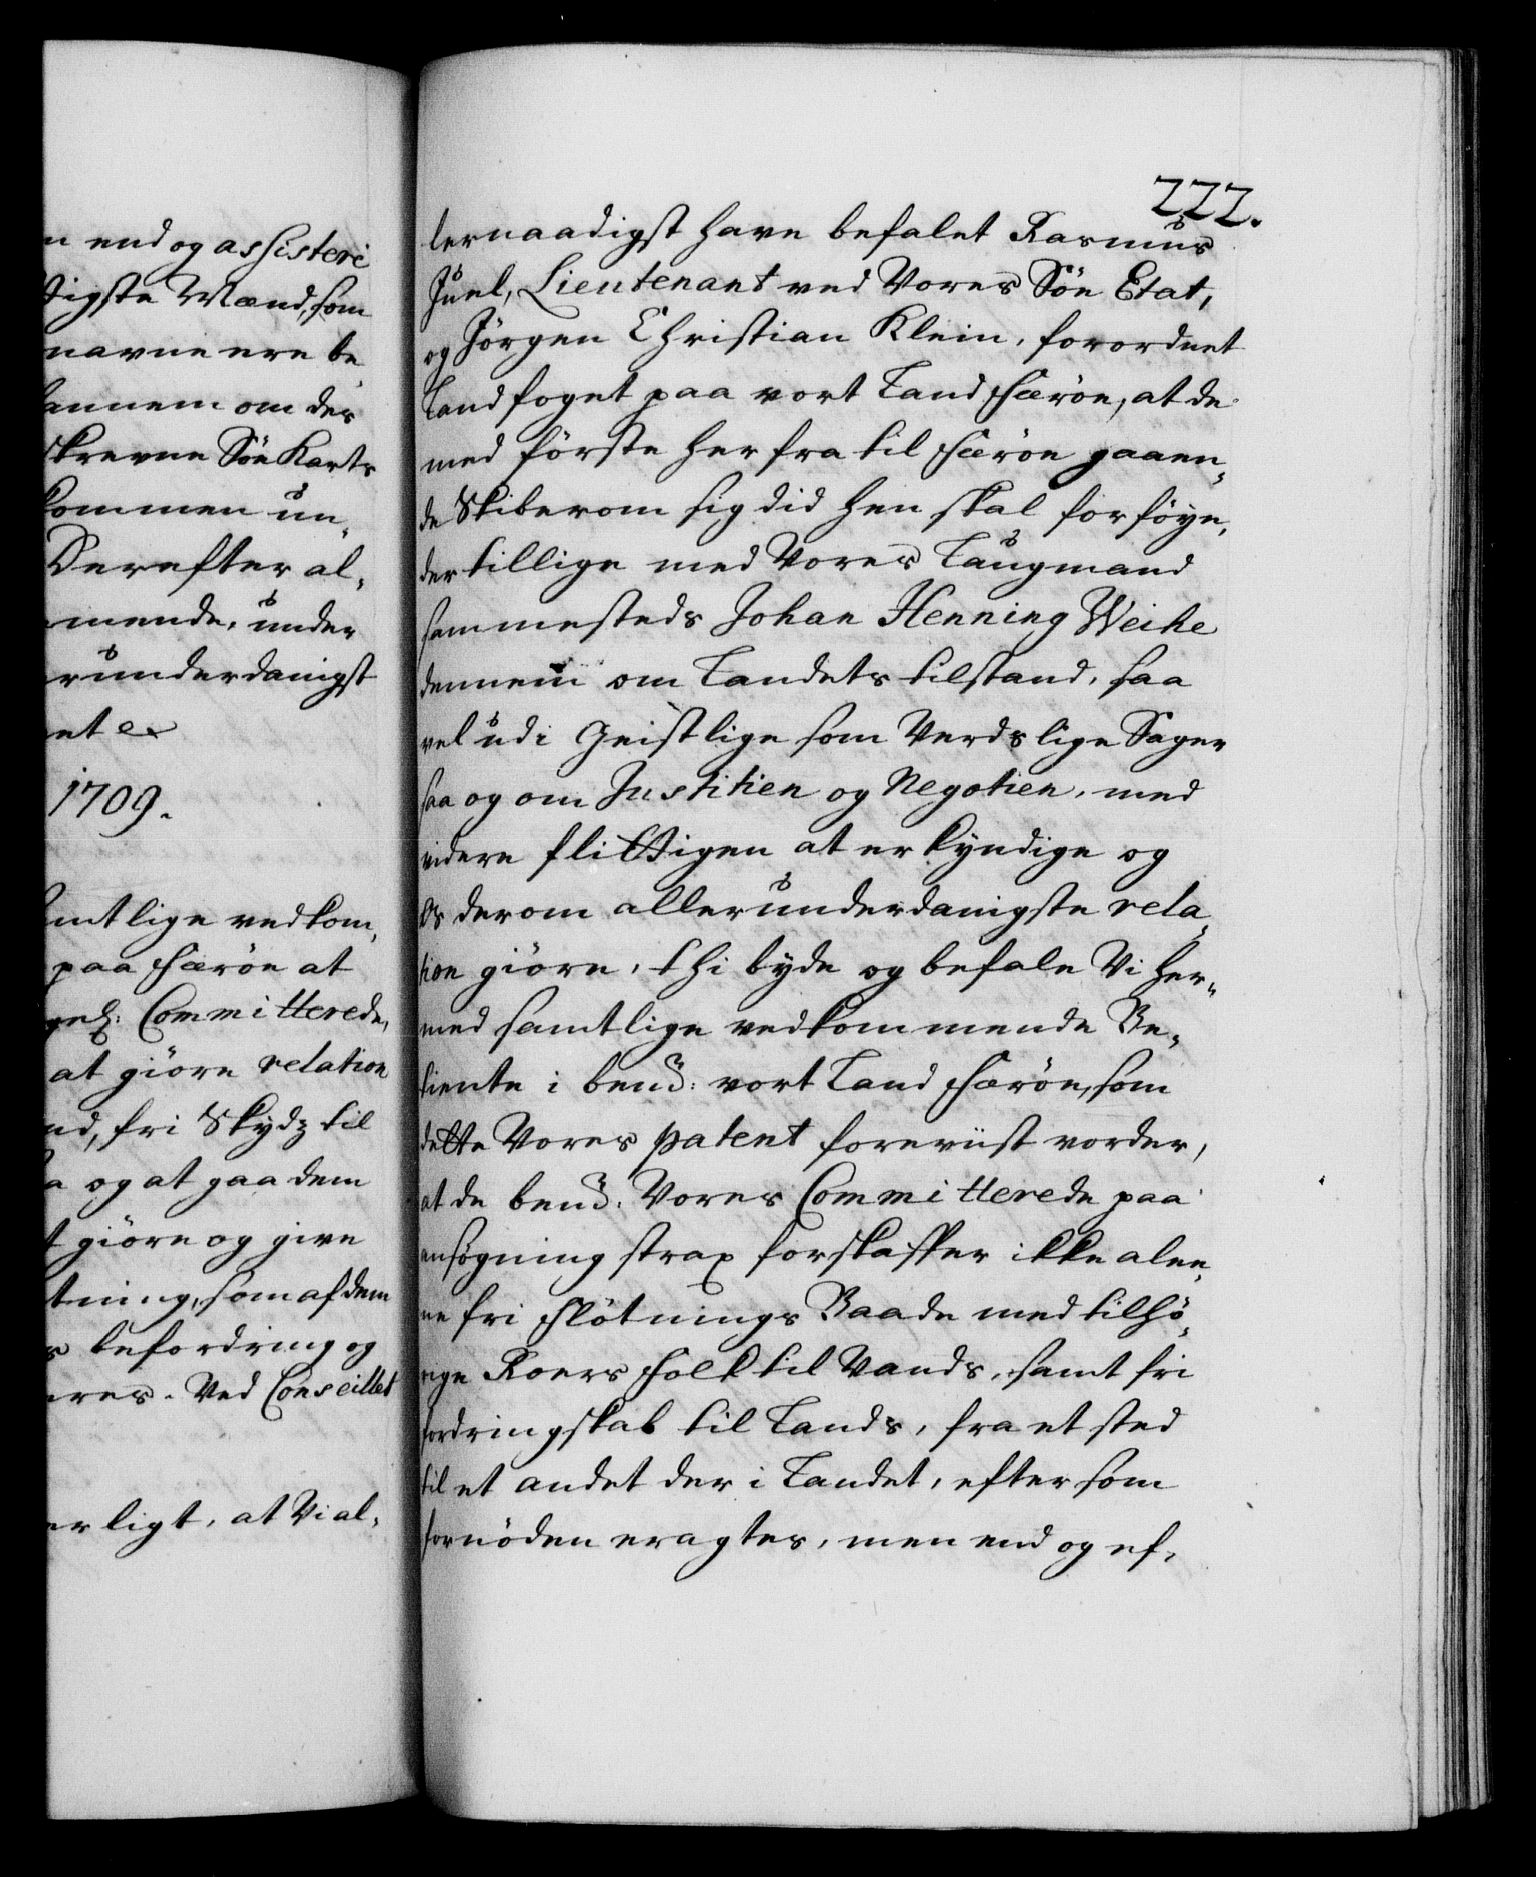 n end og assisteri
tigste Mænd, som
navne ere be
annem om des
skrevne Söe Karts
kommen un„
Derefter al„
mende, under
runderdanigst
et &
1709.
amtlige vedkom„
paa Færöe at
Committerede,
at giöre relation
nd, fri Skydz til
a og at gaa dem
t giöre og give
tning, som af dem
s befordring og
eres. Ved Conseillet
erligt, at Vi al„
222.
lernaadigst have befalet Rasmus
Juel, Lieutenant ved Vores Söe Etat,
og Jörgen Christian Klein, forordnet
Landfoget paa vort Land Færöe, at de
med förste her fra til Færöe gaaen„
de Skiberom sig did hen skal forföye,
der tillige med Vores Laugmand
sammesteds Johan Henning Weihe
dennem om Landets tilstand, saa
vel udi Geistlige som Verdslige Sager
saa og om Justitien og Negotien, med
videre flittigen at erkyndige og
Os derom allerunderdanigste rela„
tion giöre, thi byde og befale Vi her„
med samtlige vedkommende Be„
tiente i bemd: vort Land Færöe, som
dette Vores patent foreviist vorder,
at de bemd: Vores Committerede paa
ansøgning strax forskaffer ikke alee„
ne fri Flötnings Baade med tilhö„
rige Roers Folk til Vands, samt fri
fordringskab til Lands, fra et sted
til et andet der i Landet, eftersom
fornöden eragtes, men end og ef„